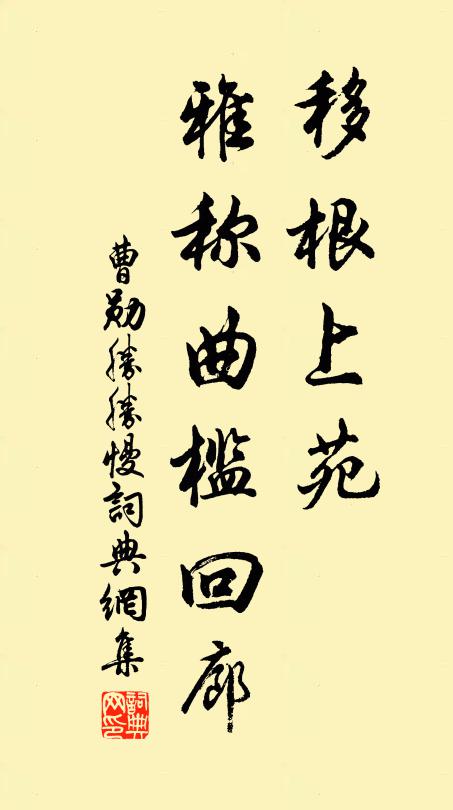 移根上苑
雅称曲槛回廊
曹勋勝勝慢詞典網集
詞典网印